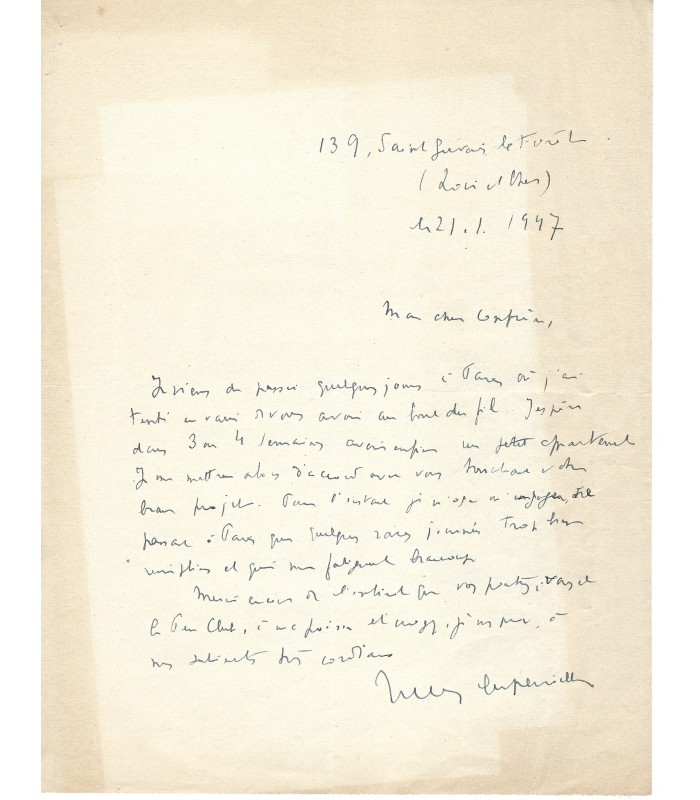 139, Saint Gervais la Forêt.
(Loir et Cher)
le 21.1.1947
Mon cher Confrère,
Je viens de passer quelques jours à Paris où j'ai
tenté en vain de vous avoir au bout du fil. J'espère
dans 3 ou 4 semaines avoir enfin un petit appartement
Je me mettrai alors d'accord avec vous touchant votre
beau projet. Pour l'instant je n'ose m'engager, ne
passant à Paris que quelques rares journées trop bien
remplies et qui me fatiguent beaucoup
Merci encore de l'intérêt que vous portez, vous et
le Pen Club, à ma poésie et croyez, je vous prie, à
mes sentiments très cordiaux
Jules Supervielle